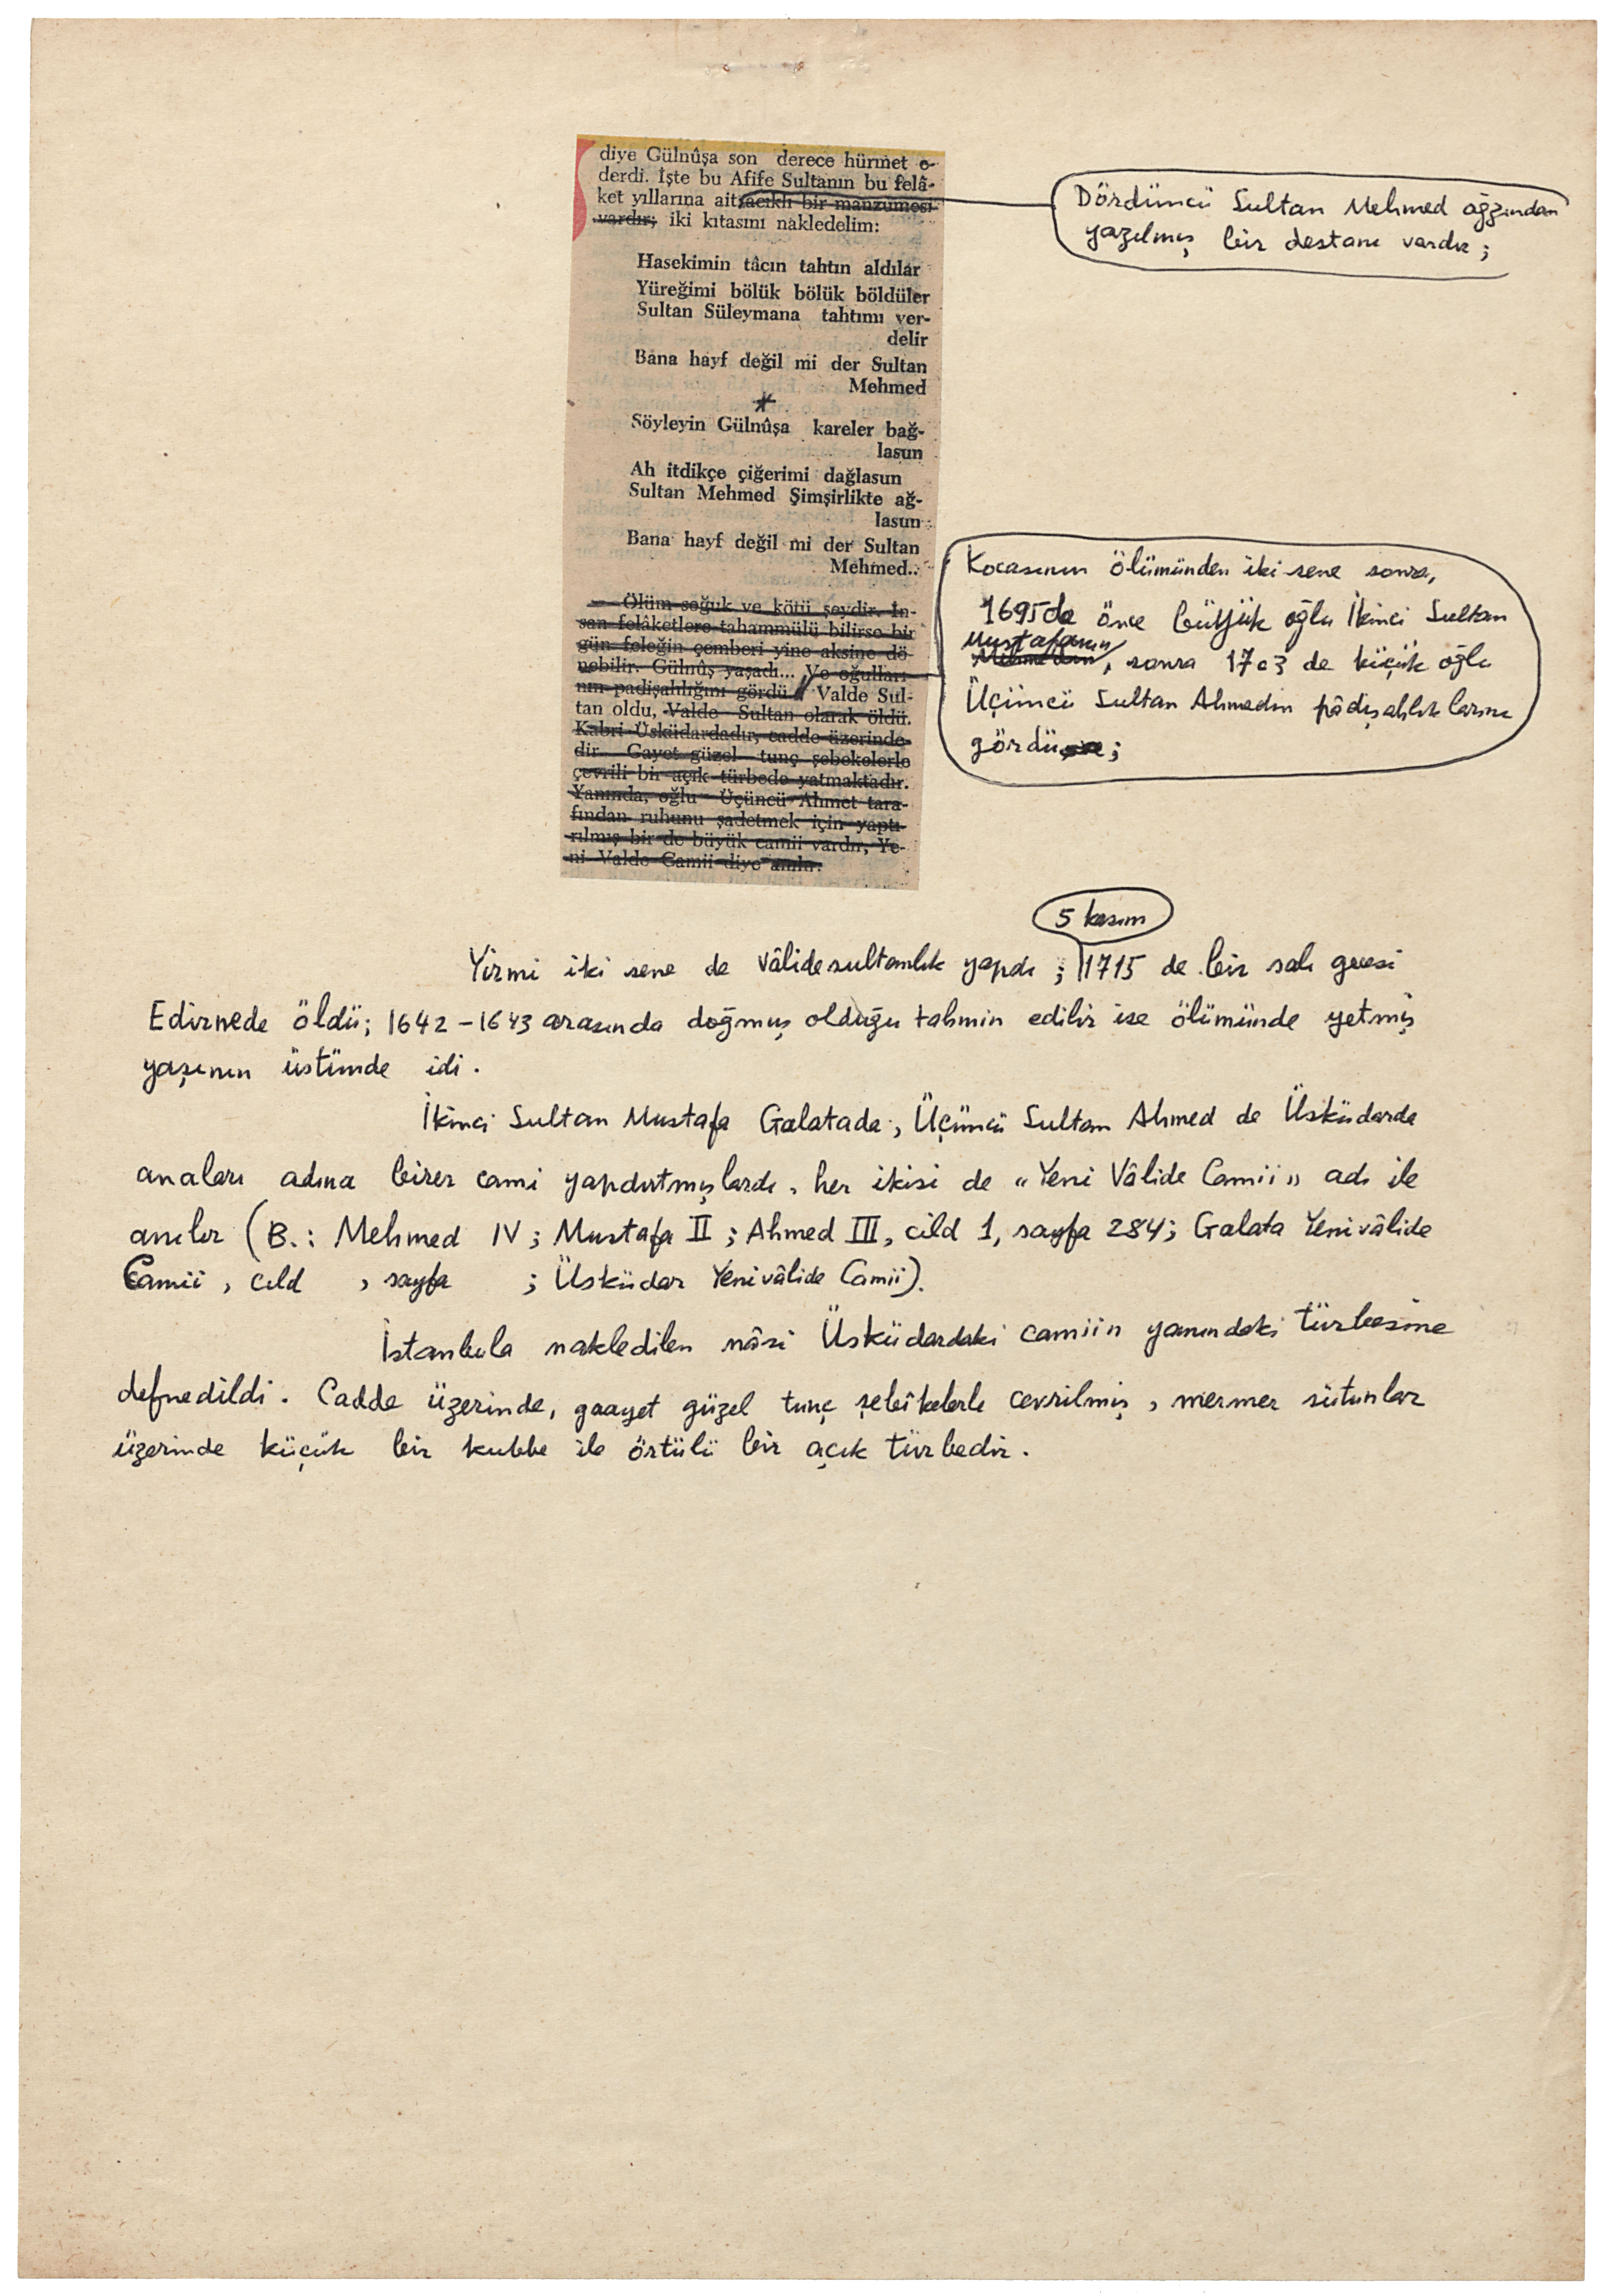 diye Gülnûşa son derece hürmet e-
derdi. İşte bu Afife Sultanın bu felâ-
ket yıllarına ait acıklı bir manzumesi
vardır; iki kıtasını nakledelim:
Dördüncü Sultan Mehmed ağzından
yazılmış bir destanı vardır;
Hasekimin tâcın tahtın aldılar
Yüreğimi bölük bölük böldüler
Sultan Süleymana tahtımı ver-
delir
Bana hayf değil mi der Sultan
Mehmed
*
Söyleyin Gülnûşa kareler bağ-
lasun
Ah itdikçe çiğerimi dağlasun
Sultan Mehmed Şimşirlikte ağ-
lasun
Bana hayf değil mi der Sultan
Mehmed..
— Ölüm soğuk ve kötü şeydir. İn-
san felâketlere tahammülü bilirse bir
gün feleğin çemberi yine aksine dö-
nebilir. Gülnûş yaşadı... Ve oğulları-
nın padişahlığını gördü. Valde Sul-
tan oldu, Valde Sultan olarak öldü.
Kabri Üsküdardadır, cadde üzerinde-
dir. Gayet güzel tunç şebekelerle
çevrili bir açık türbede yatmaktadır.
Yanında, oğlu Üçüncü Ahmet tara-
fından ruhunu şadetmek için yaptı-
rılmış bir de büyük camii vardır, Ye-
ni Valde Camii diye anılır.
Kocasının ölümünden iki sene sonra,
1695de önce büyük oğlu İkinci Sultan
Mustafanın
Mehmedin, sonra 1703 de küçük oğlu
Üçüncü Sultan Ahmedin pâdişahlıklarını
gördü;
5 kasım
Yirmi iki sene de vâlidesultanlık yapdı; 1715 de bir salı gecesi
Edirnede öldü; 1642-1643 arasında doğmuş olduğu tahmin edilir ise ölümünde yetmiş
yaşının üstünde idi.
İkinci Sultan Mustafa Galatada, Üçüncü Sultan Ahmed de Üsküdarda
anaları adına birer cami yapdırtmışlardı, her ikisi de "Yeni Vâlide Camii" adı ile
anılır (B.: Mehmed IV; Mustafa II; Ahmed III, cild 1, sayfa 284; Galata Yenivâlide
Camii, cild , sayfa ; Üsküdar Yenivâlide Camii).
İstanbula nakledilen nâşi Üsküdardaki camiin yanındaki türbesine
defnedildi. Cadde üzerinde, gaayet güzel tunç şebîkelerle cevrilmiş, mermer sütunlar
üzerinde küçük bir kubbe ile örtülü bir açık türbedir.